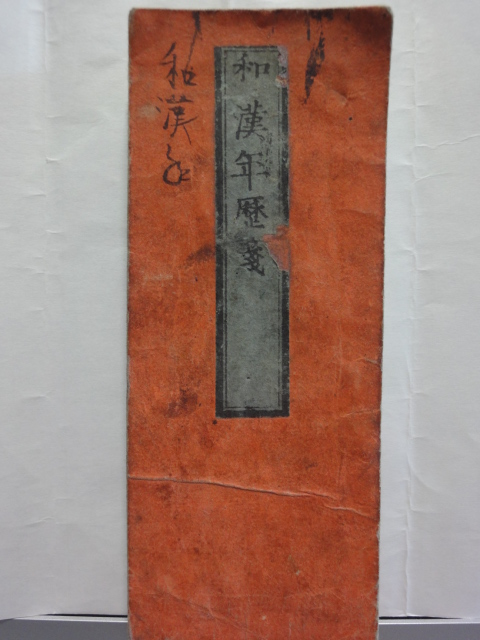 和漢年歴箋
和漢年